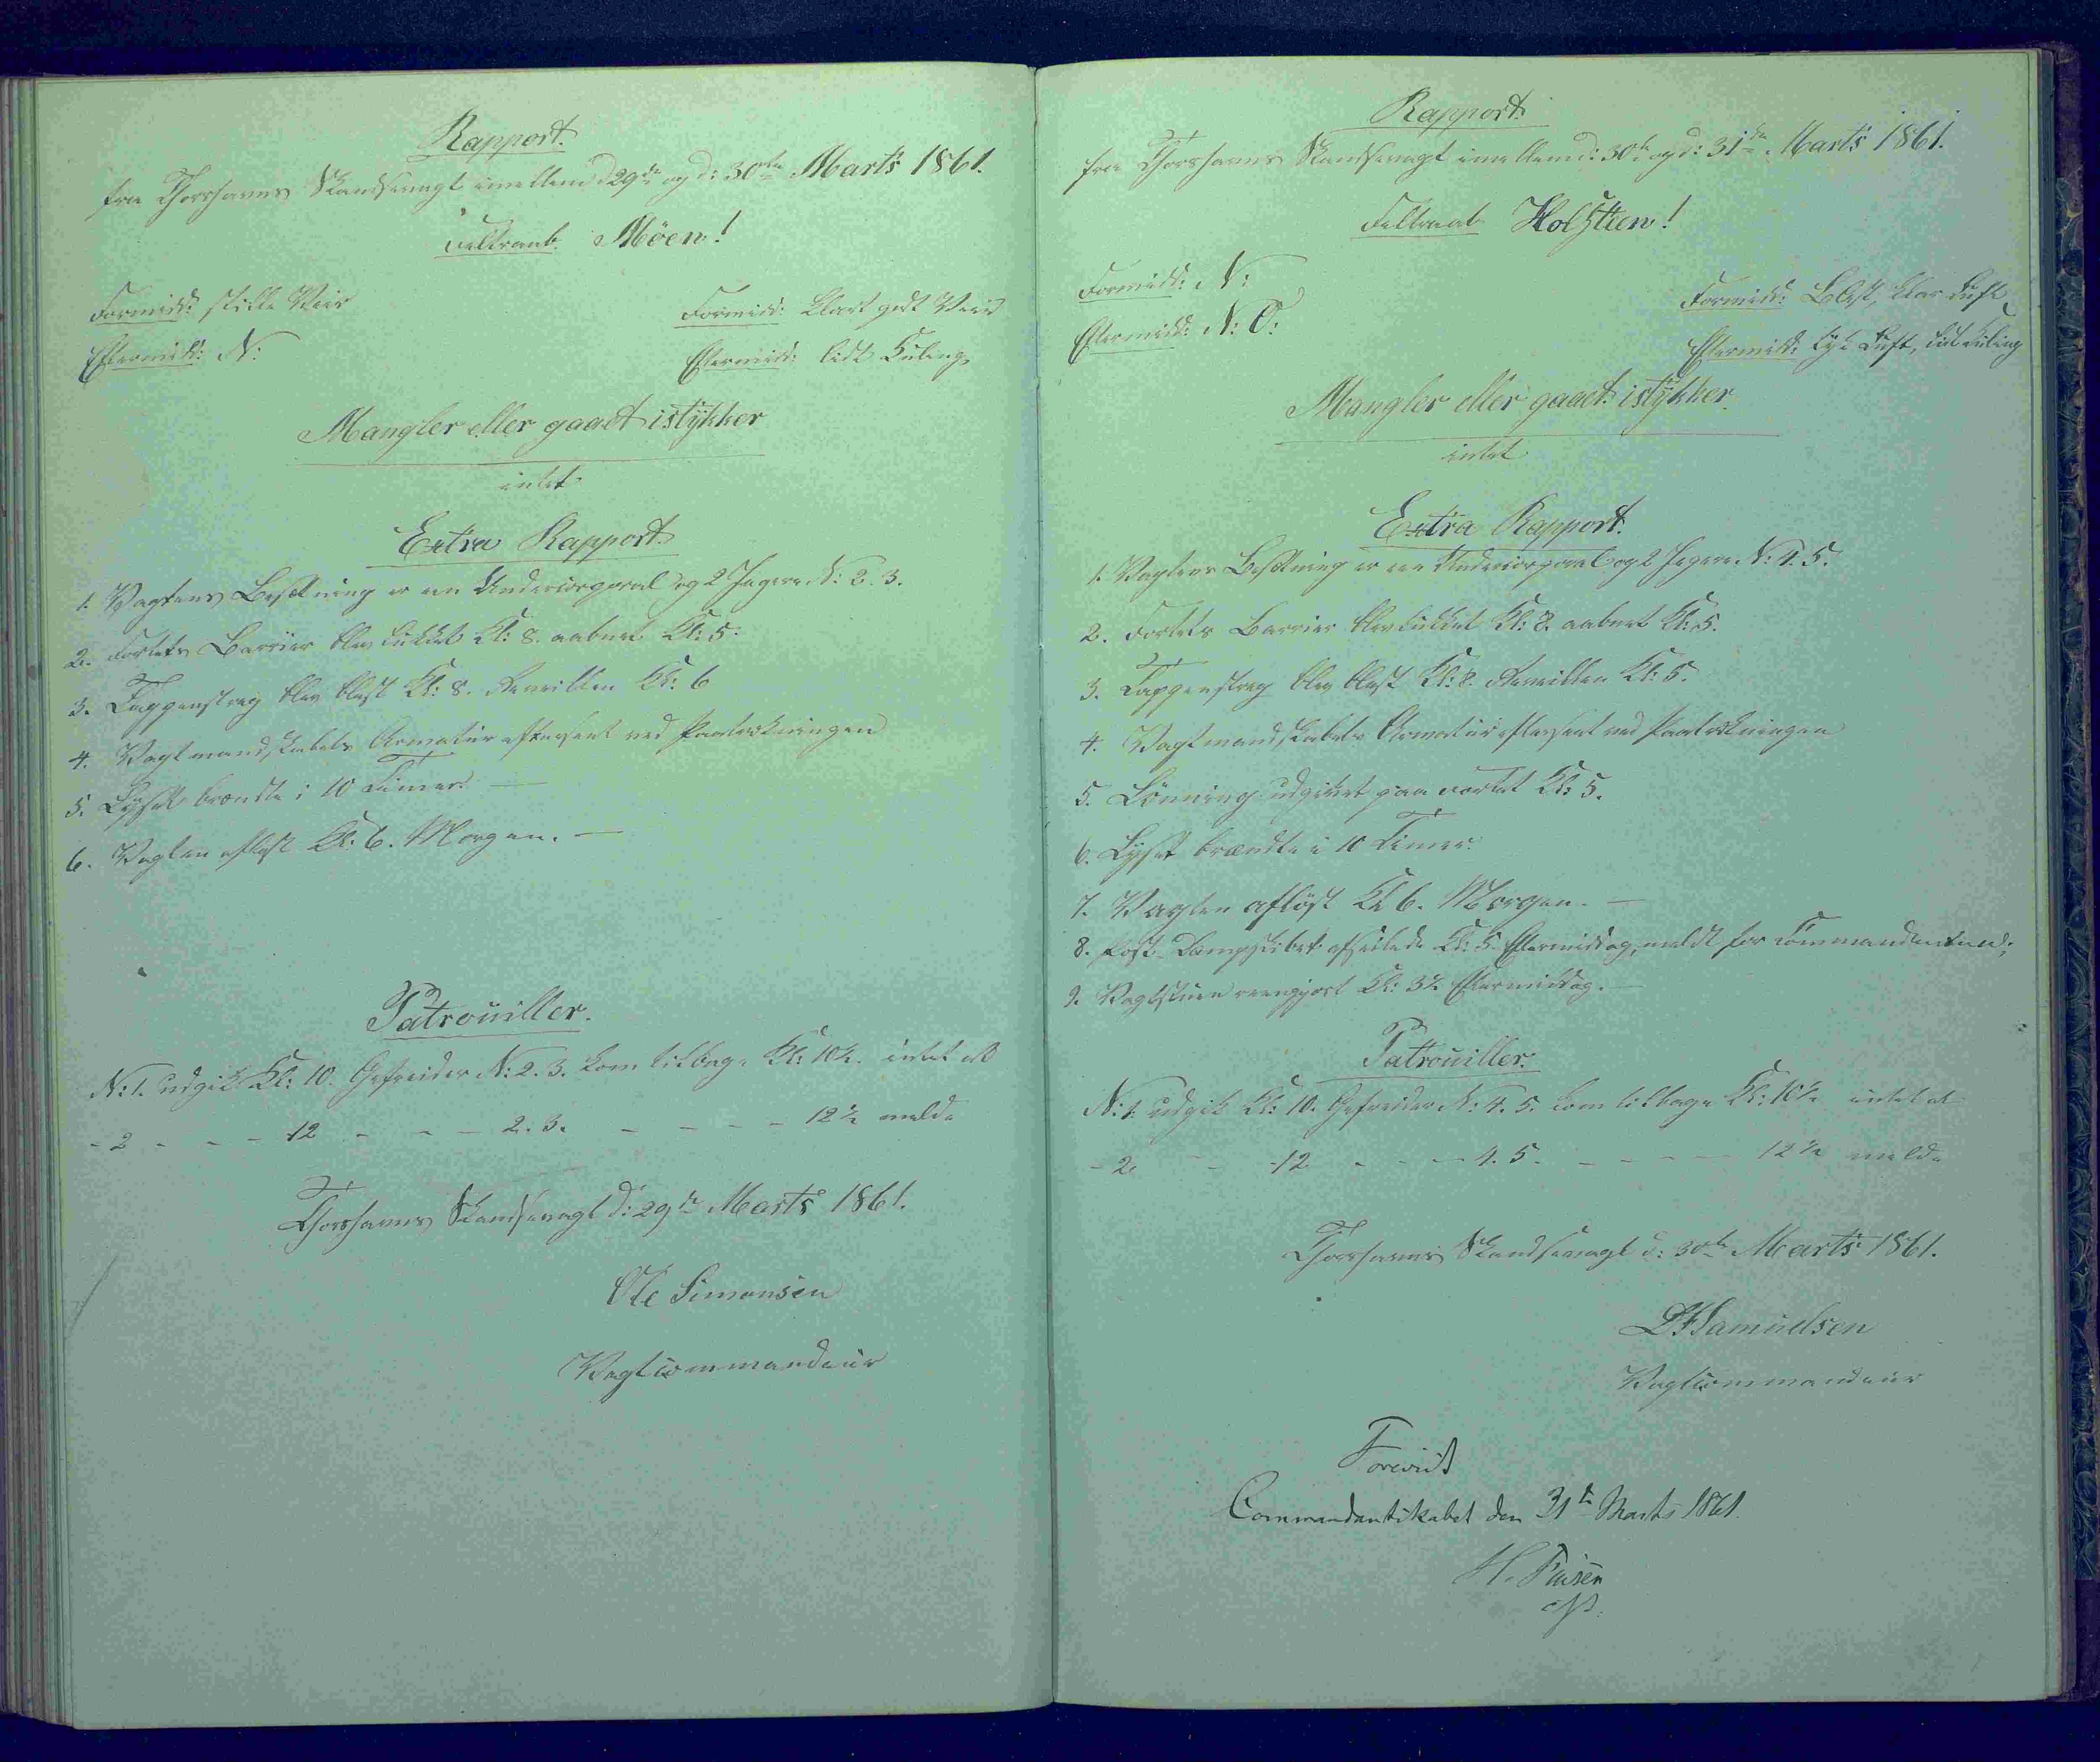 Rapport.
fra Thorshavns Skandsevagt imellem d: 29de og d: 30te Marts 1861.
Feltraab. Möen!
Formidd: stille Veir
Formidd: klart godt Veir
Eftermidd: N:
Eftermidd: lidt Kuling
Mangler eller gaaet istÿkker
intet
Extra Rapport
1. Vagtens Besætning er een Undercorporal og 2 Jægere N: 2. 3.
2. Fortets Barrier blev lukket Kl: 8. aabnet Kl: 5.
3. Tappenstreg blev blæst Kl: 8. Reveillen Kl: 6
4. Vagtmandskabets Armatur efterseet ved Paatrækningen
5. Lyset brændte i 10 Timer. —
6. Vagten afløst Kl: 6. Morgen. —
Patrouiller.
N: 1. udgik Kl: 10. Gefreider N: 2. 3. kom tilbage Kl: 10½. intet at
- 2 - - - 12 - - - 2. 3. - - - - 12½ melde
Thorshavns Skandsevagt d: 29de Marts 1861.
Ole Simonsen
Vagtcommandeur
Rapport.
fra Thorshavns Skandsevagt imellem d: 30te og d: 31te Marts 1861.
Feltraab Holsteen!
Formidd: N:
Formidd: Blæst, klar Luft
Eftermidd: N: O:
Eftermidd: tyk Luft, lidt Kuling
Mangler eller gaaet istÿkker.
intet
Extra Rapport.
1. Vagtens Besætning er een Undercorporal og 2 Jægere N: 4. 5.
2. Fortets Barrier blev lukket Kl: 8. aabnet Kl: 5.
3. Tappenstreg blev blæst Kl: 8. Reveillen Kl: 5.
4. Vagtmandskabets Armatur efterseet ved Paatrækningen
5. Lönning udgivet paa Fortet Kl: 5.
6. Lyset brændte i 10 Timer.
7. Vagten aflöst Kl 6. Morgen. —
8. Post-Dampskibet afseilede Kl: 5. Eftermiddag, meldt for Commandanten;
9. Vagtstuen reengjort Kl: 3½ Eftermiddag. —
Patrouiller.
N: 1. udgik Kl: 10. Gefreider N: 4. 5. kom tilbage Kl: 10½ intet at
- 2. - - 12 - - - 4. 5. - - - - - 12½ melde
Thorshavns Skandsevagt d: 30te Marts 1861.
DHSamuelsen
Vagtcommandeur
Forevist
Commandantskabet den 31te Marts 1861.